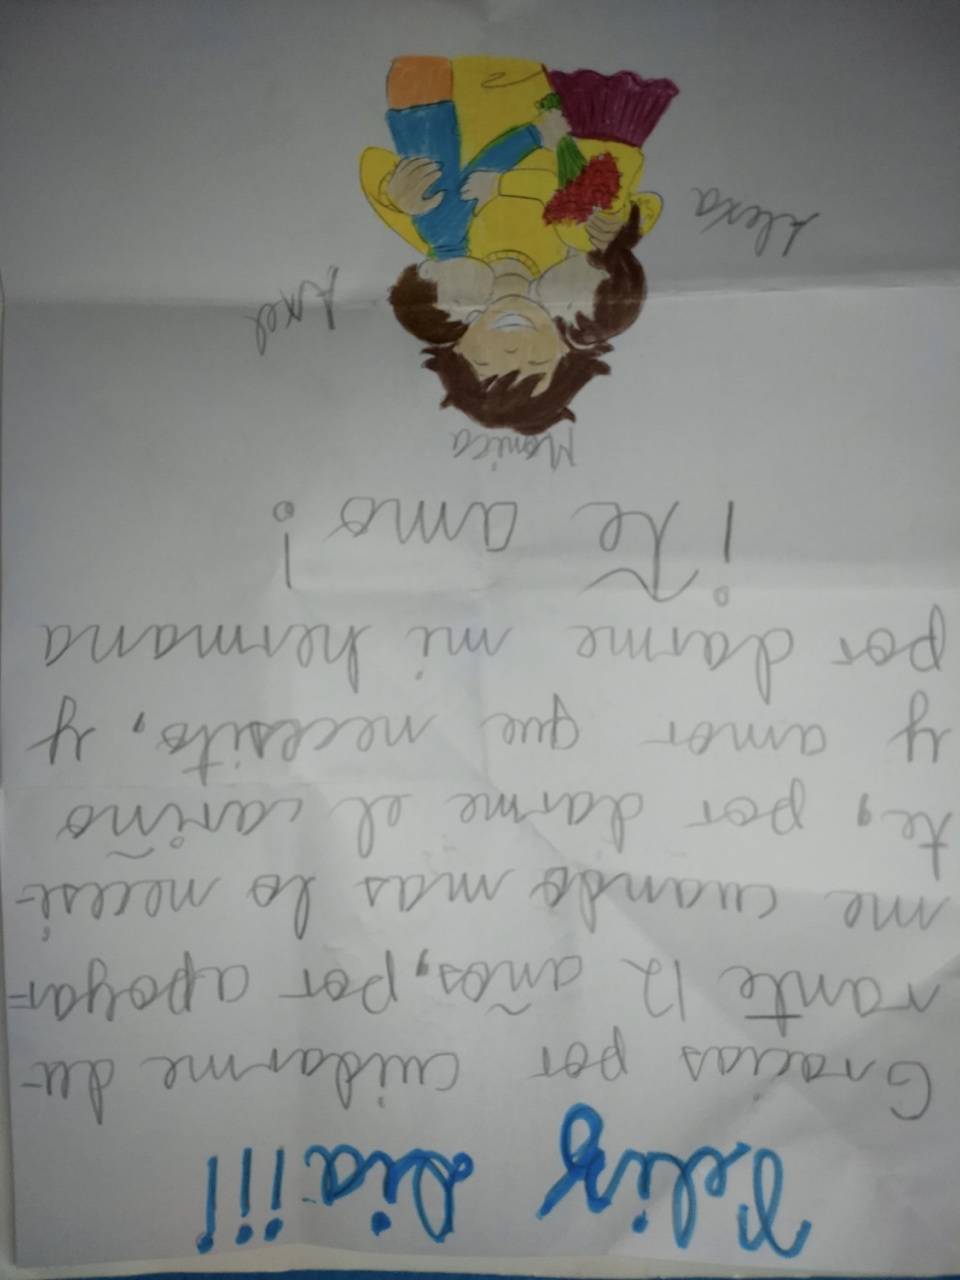 Feliz Dia!!!
Gracias por cuidarme du-
rante 12 años, por apoyar-
me cuando mas lo necesi-
te, por darme el cariño
y amor que necesito, y
por darme mi hermana
¡Te amo!
Monica
Axel
Alexa